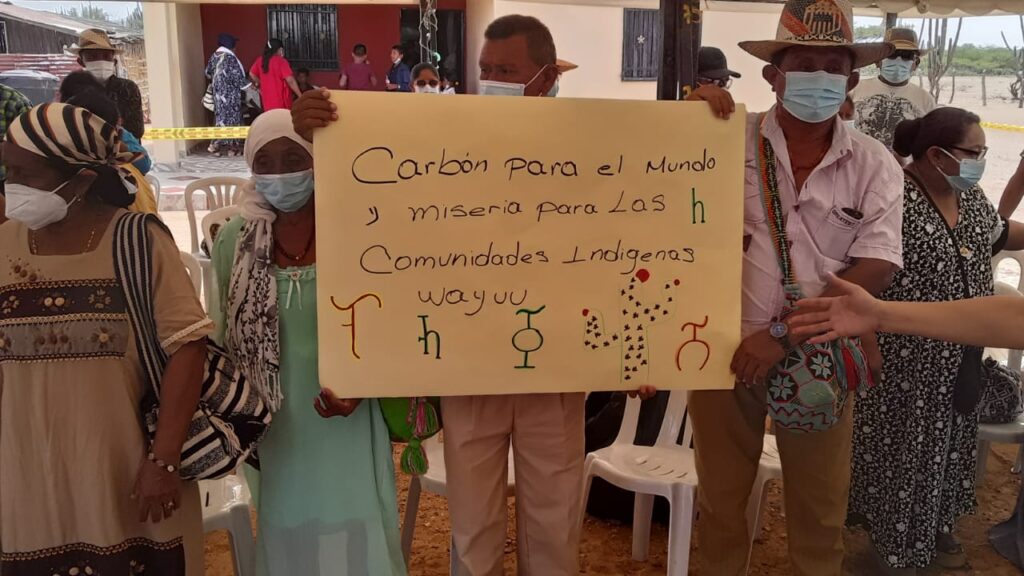 Carbón para el Mundo
y miseria para Las
Comunidades Indigenas
wayuu